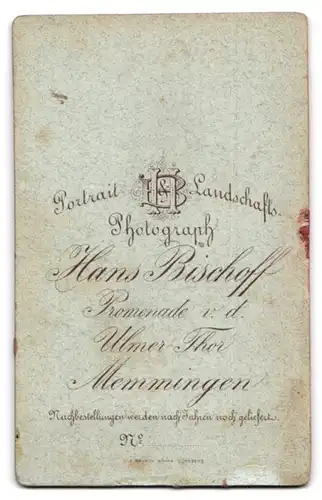 Portrait & Landschafts-
HB
Photograph
Hans Bischoff
Promenade v. d.
Ulmer Thor
Memmingen
Nachbestellungen werden nach Jahren noch geliefert.
No